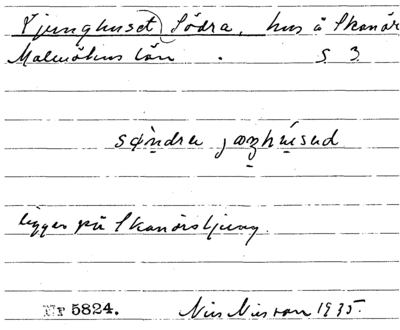 Ljunghuset, Södra, hus å Skanör
Malmöhus län . S 3.
ligger på Skanörs ljung.
Nr 5824. Nils Nilsson 1935.